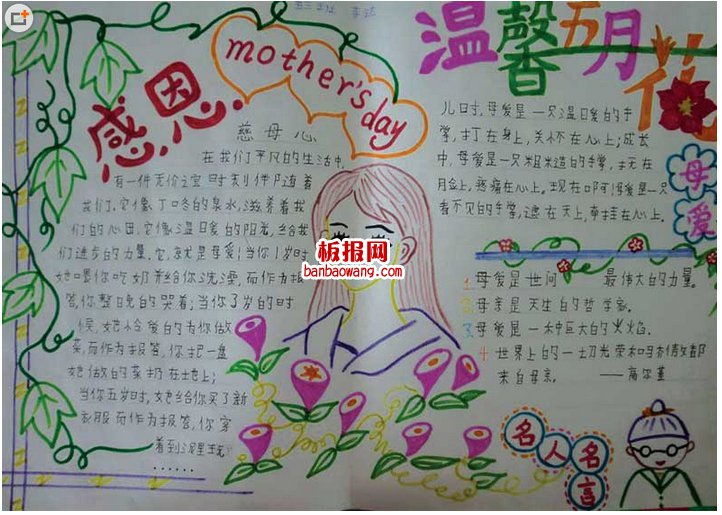 感恩
mother's day
慈母心
在我们平凡的生活中,
有一件无价之宝时刻伴随着
我们.它像丁冬的泉水,滋养着我
们的心田.它像温暖的阳光,给我
们进步的力量.它,就是母爱!当你1岁时
她喂你吃奶并给你洗澡,而作为报
答你整晚的哭着;当你3岁的时
候,她怜爱的为你做
菜.而作为报答,你把一盘
她做的菜扔在地上;
当你五岁时,她给你买了新
衣服而作为报答,你穿
着到泥里玩
......
板报网
banbaowang.com
温馨五月花
儿时,母爱是一只温暖的手
掌,打在身上,关怀在心上;成长
中,母爱是一只粗糙的手掌,
脸上,疼痛在心上.现在啊!母爱是一只
看不见的手掌,远在天上,牵挂在心上.
母爱
1 母爱是世间 最伟大的力量。
2 母亲是天生的哲学家.
3 母爱是一种巨大的火焰.
4 世界上的一切光荣和骄傲,都
来自母亲. ——高尔基
名人名言